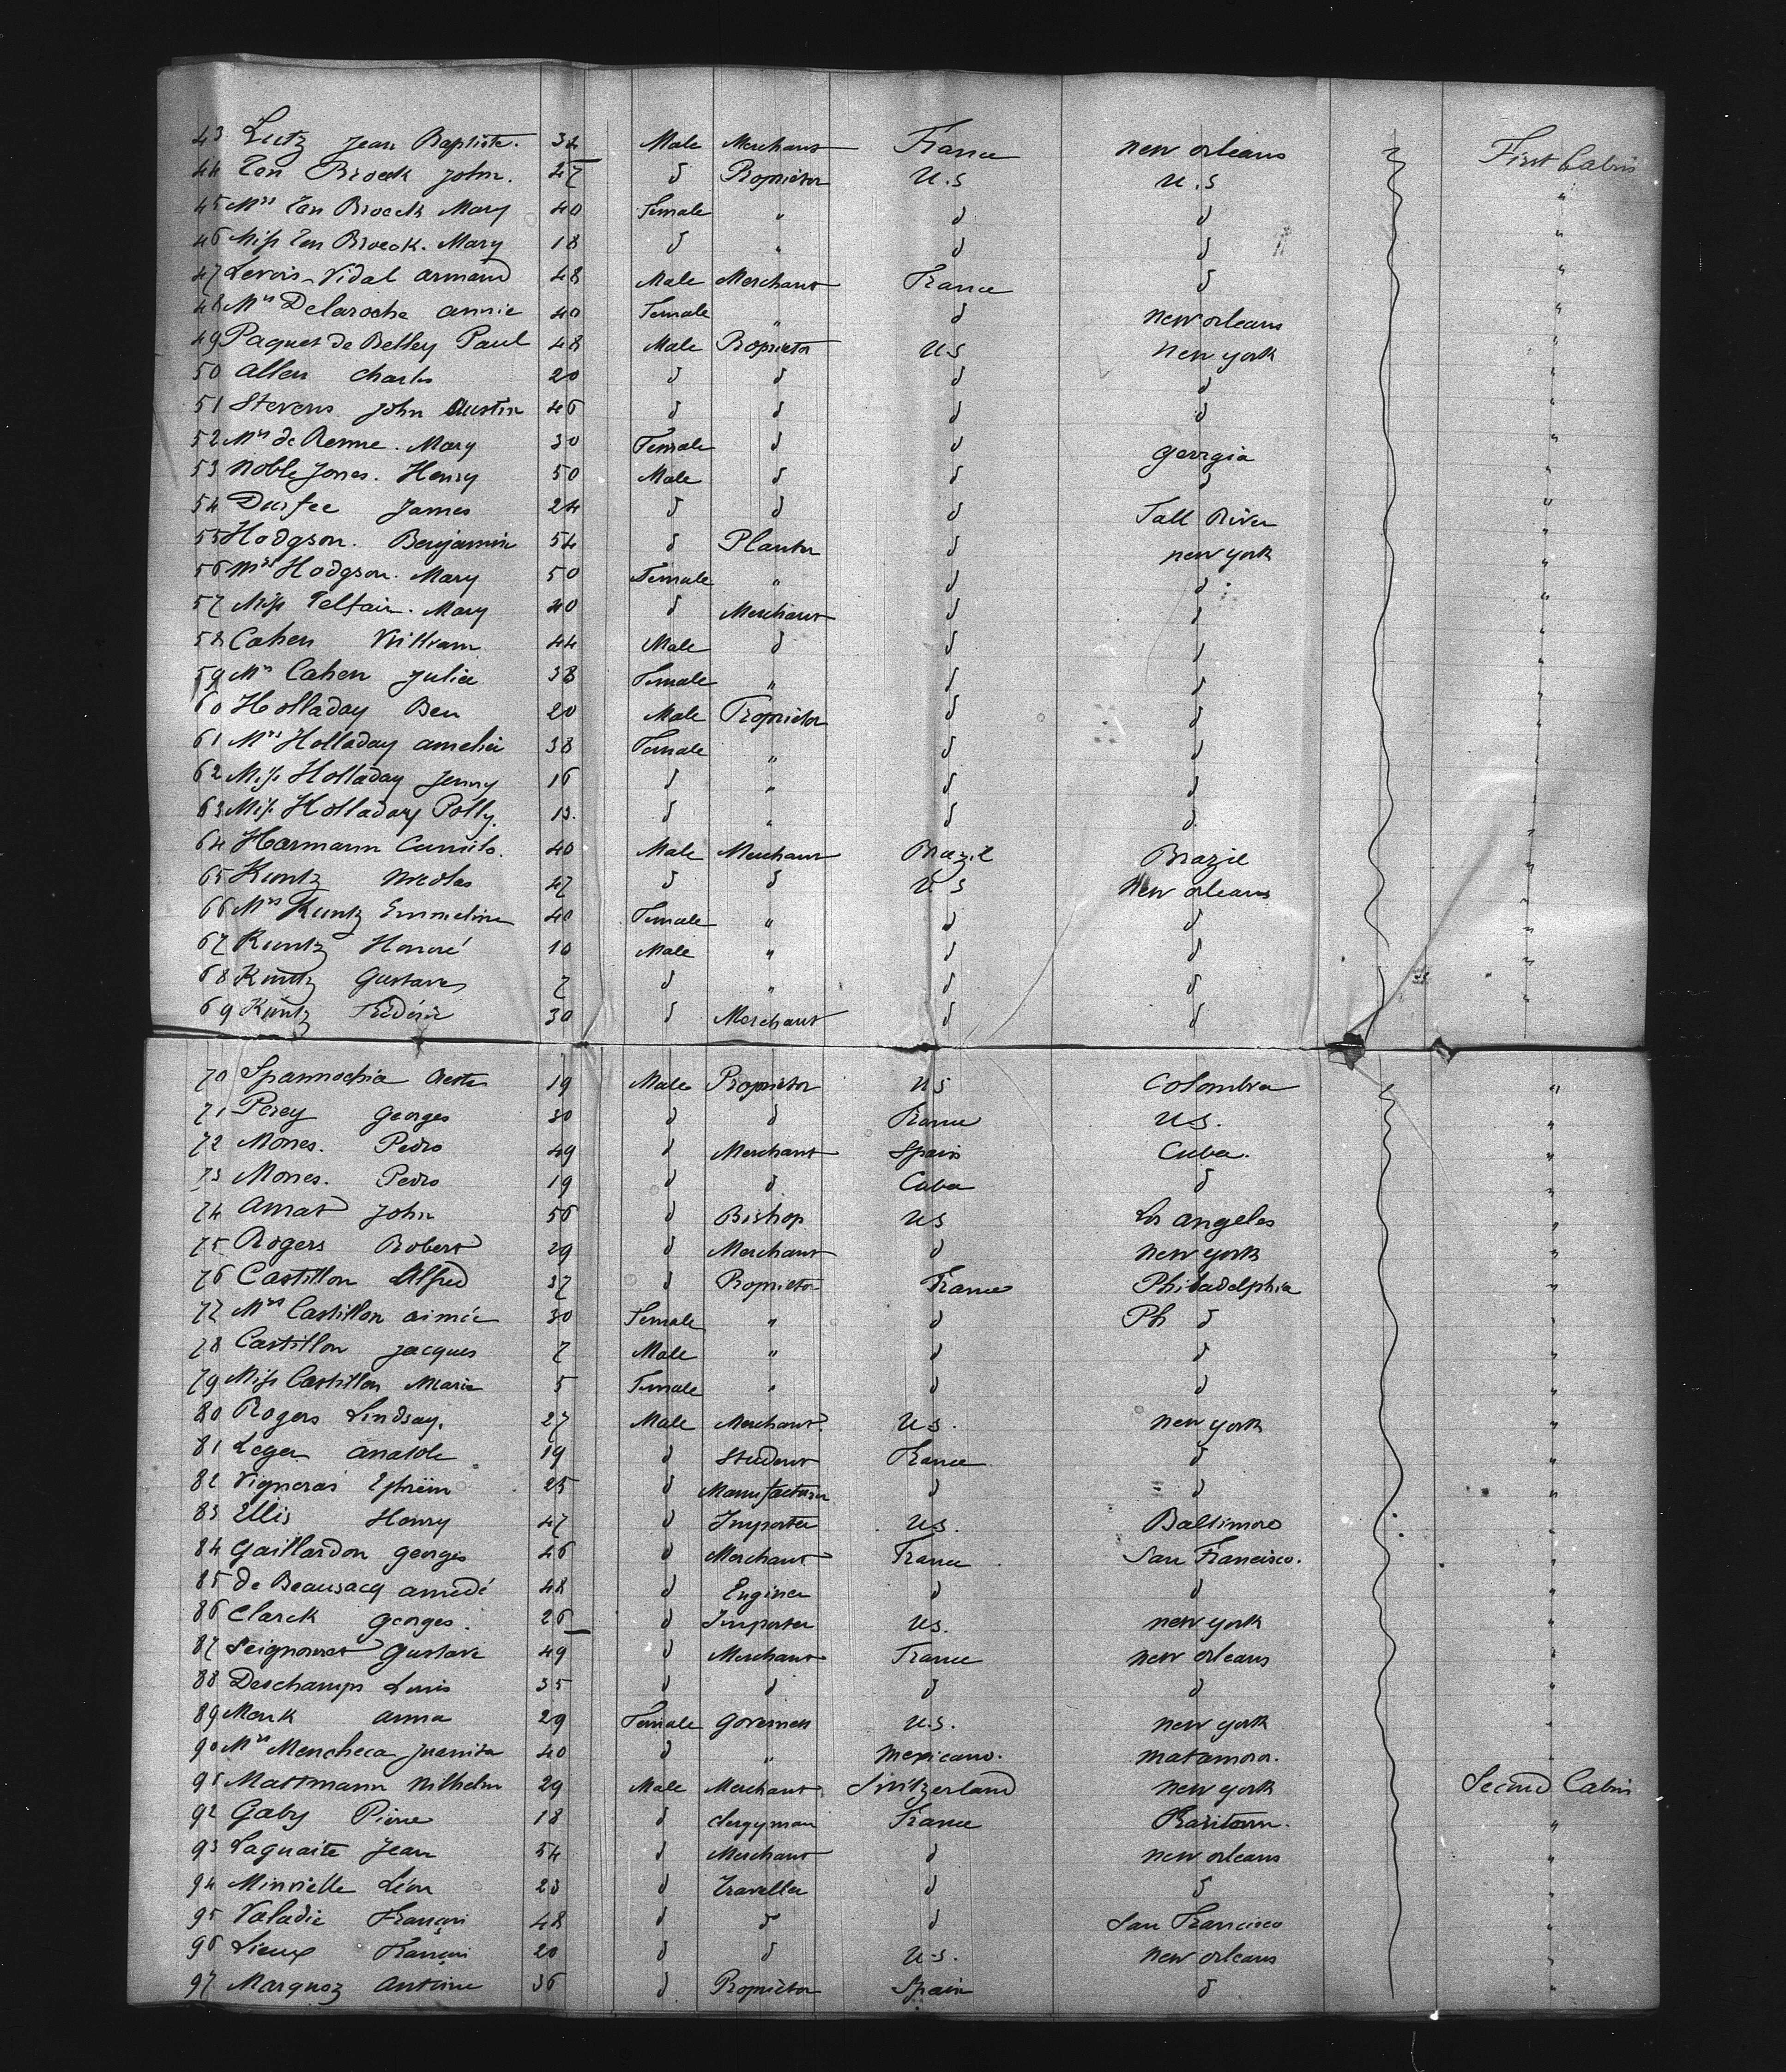 43 Lutz Jean Baptiste. 32 Male Merchant France New Orleans First Cabin
44 Ten Broeck John. 47 d Proprietor U.S U.S "
45 Mrs Ten Broeck Mary 40 Female " d d "
46 Miss Ten Broeck. Mary 18 d " d d "
47 Levois-Vidal Armand 48 Male Merchant France d "
48 Mrs Delaroche Annie 40 Female " d New Orleans "
49 Paquet de Belley Paul 48 Male Proprietor US New York "
50 Allen Charles 20 d d d d "
51 Stevens John Austin 46 d d d d "
52 Mrs de Renne. Mary 30 Female d d Georgia "
53 Noble Jones. Henry 50 Male d d d "
54 Durfee James 24 d d d Fall River "
55 Hodgson. Benjamin 54 d Planter d New York "
56 Mrs Hodgson. Mary 50 Female " d d "
57 Miss Telfair. Mary 40 d Merchant d d "
58 Cahen William 44 Male d d d "
59 Mrs Cahen Julia 38 Female " d d "
60 Holladay Ben 20 Male Proprietor d d "
61 Mrs Holladay Amelia 38 Female " d d "
62 Miss Holladay Jenny 16 d " d d "
63 Miss Holladay Polly. 13. d " d d "
64 Harmann Camilo. 40 Male Merchant Brazil Brazil "
65 Kuntz Nicolas 47 d d US New Orleans "
66 Mrs Kuntz Emmeline 40 Female " d d "
67 Kuntz Honoré 10 Male " d d "
68 Kuntz Gustave 7 d " d d "
69 Kuntz Frédéric 30 d Merchant d d "
70 Spannochia 19 Male Proprietor US Colombia "
71 Percy Georges 30 d d France US. "
72 Mones. Pedro 49 d Merchant Spain Cuba. "
73 Mones. Pedro 19 d d Cuba d "
74 Amat John 56 d Bishop US Los Angeles "
75 Rogers Robert 29 d Merchant d New York "
76 Castillon Alfred 37 d Proprietor France Philadelphia "
77 Mrs Castillon Aimée 30 Female " d Ph d "
78 Castillon Jacques 7 Male " d d "
79 Miss Castillon Marie 5 Female " d d "
80 Rogers Lindsay. 27 Male Merchant. US. New York "
81 Leger Anatole 19 d Student France d "
82 Vigneras Ephrëm 25 d Manufacturer d d "
83 Ellis Henry 47 d Importer US. Baltimore "
84 Gaillardon Georges 46 d Merchant France San Francisco. "
85 de Beausacq Amédé 48 d Engineer d d "
86 Clarck Georges. 26 d Importer US. New York "
87 Seignouret Gustave 49 d Merchant France New Orleans "
88 Deschamps Louis 35 d d d d "
89 Monk Anna 29 Female Governess U.S. New York "
90 Mrs Mencheca Juanita 40 d " Mexicano. Matamoros. "
91 Mattmann Wilhelm 29 Male Merchant Switzerland New York Second Cabin
92 Gaby Pierre 18 d Clergyman France "
93 Laguaite Jean 54 d Merchant d New Orleans "
94 Minvielle Léon 23 d Traveller d d "
95 Valadie François 48 d d d San Francisco "
96 Lieux François 20 d d U.S. New Orleans "
97 Marquez Antoine 36 d Proprietor Spain d "